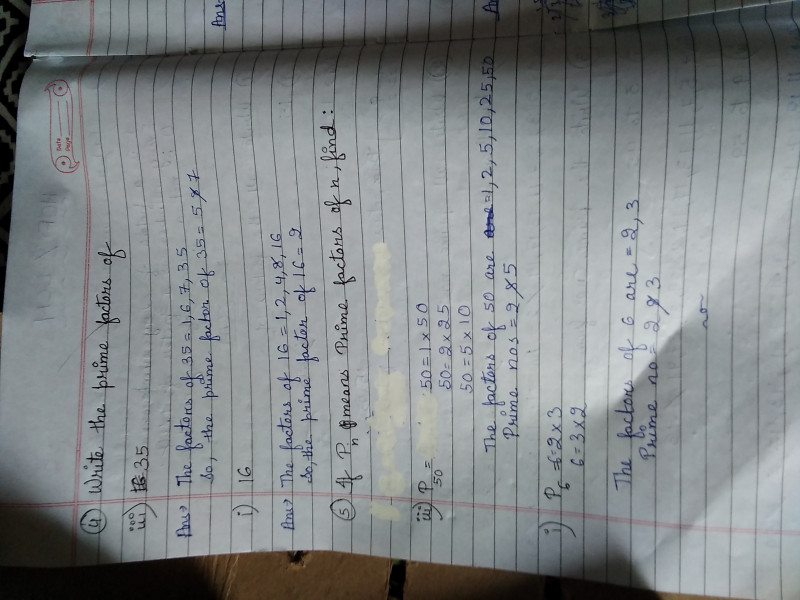 Date
Page
④ Write the prime factors of
iii) 35
Ans→ The factors of 35 = 1,6,7,35
So, the prime factor of 35 = 5,7
i) 16
Ans→ The factors of 16 = 1,2,4,8,16
So, the prime factor of 16 = 2
⑤ If Pn means Prime factors of n, find:
iii) P50 = 50 = 1 x 50
50 = 2 x 25
50 = 5 x 10
The factors of 50 are = 1, 2, 5, 10, 25, 50
Prime nos = 2, 5
i) P6 = 6 = 2 x 3
6 = 3 x 2
The factors of 6 are = 2, 3
Prime no = 2, 3
Ans